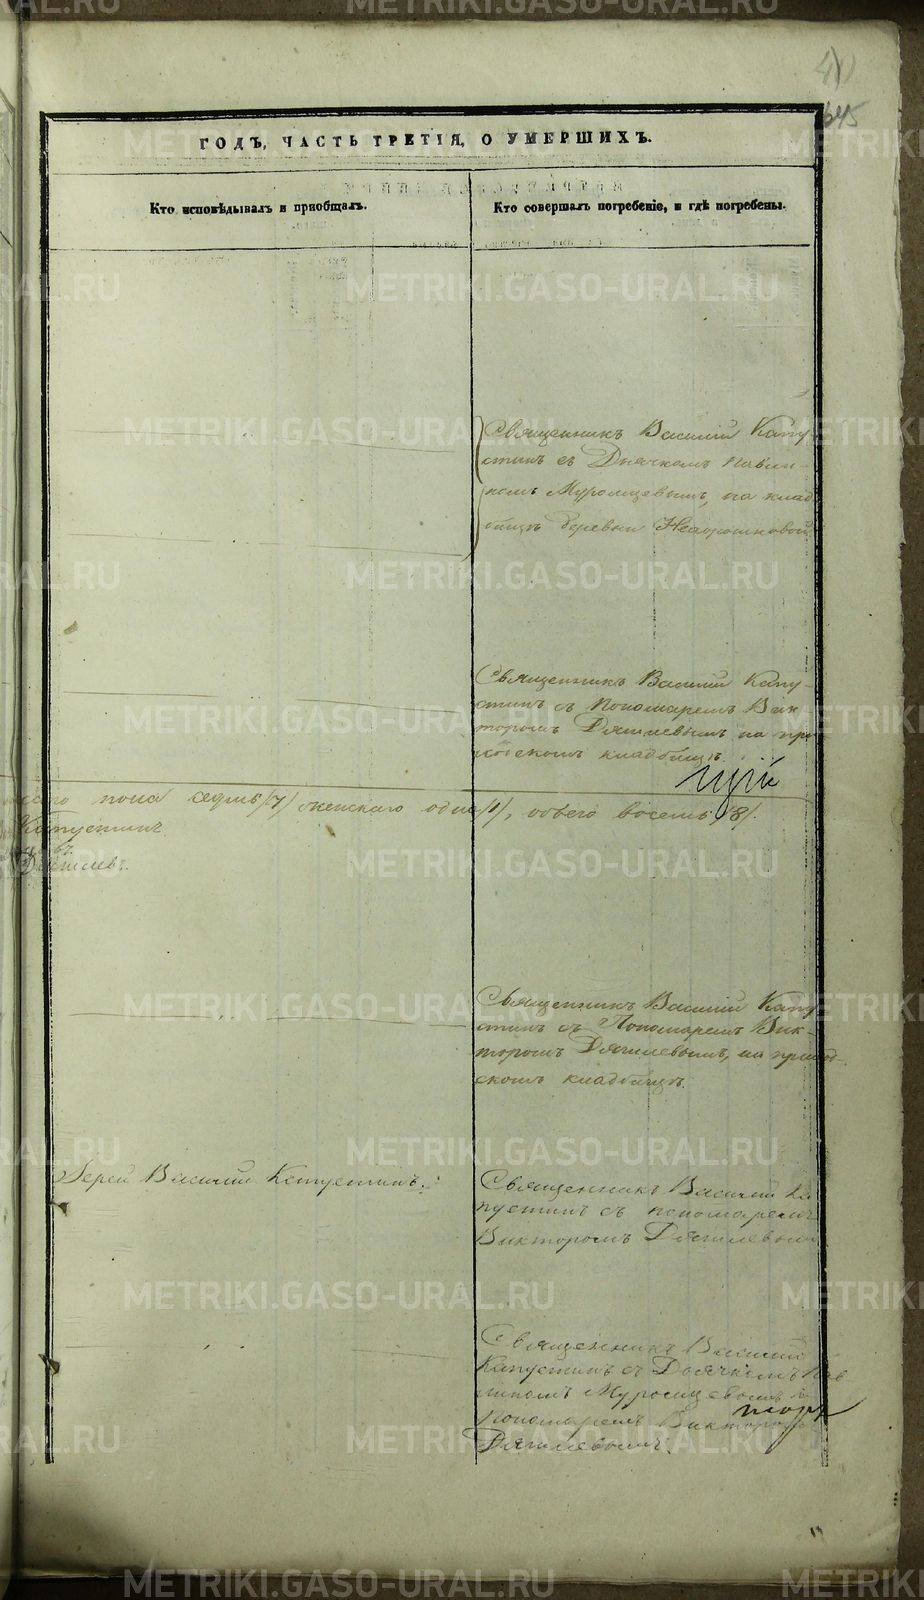 645
ГОДЪ, ЧАСТЬ ТРЕТІЯ, О УМЕРШИХЪ.
Кто исповѣдывалъ и пріобщалъ.
Кто совершалъ погребеніе, и гдѣ погребены.
Священникъ Василій Капу
стинъ съ Дьячкомъ Павли-
номъ Муромцевымъ, на клад
бищѣ деревни
Священникъ Василій Капу-
стинъ съ Пономаремъ Вик
торомъ Дягилевымъ на при
ходскомъ кладбищѣ.
пола седмь /7/ женскаго одна /1/, обоего восемь /8/.
Капустинъ
Дягилевъ.
Священникъ Василій Капу
стинъ съ Пономаремъ Вик-
торомъ Дягилевымъ, на приход-
скомъ кладбищѣ.
Іерей Василій Капустинъ.
Священникъ Василій Ка
пустинъ съ пономаремъ
Викторомъ Дягилевымъ
Священникъ Василій
Капустинъ съ Дьячкомъ Пав
линомъ Муромцевымъ и
Пономаремъ Викторомъ
Дягилевымъ.
METRIKI.GASO-URAL.RU